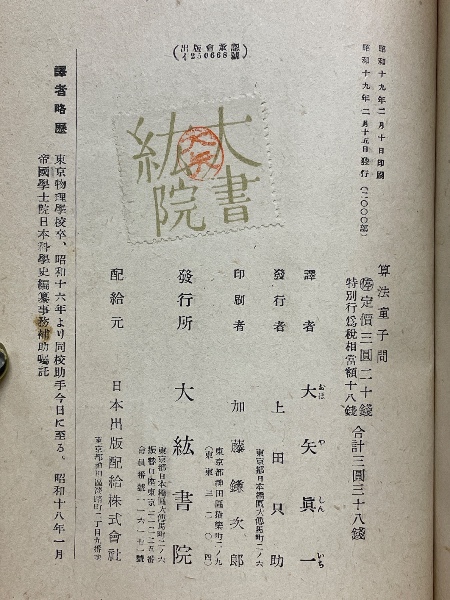 昭和十九年二月十日印刷
昭和十九年二月十五日發行（二,〇〇〇部）
算法童子問
㊞定價三圓二十錢
特別行爲稅相當額十八錢
合計三圓三十八錢
譯者 大矢眞一
おほ や しん いち
發行者 上田只助
東京都日本橋區大傳馬町二ノ六
印刷者 加藤鎌次郎
東京都神田區猿樂町二ノ九
（東東三二〇四）
發行所 大紘書院
東京都日本橋區大傳馬町二ノ六
配給元 日本出版配給株式會社
東京都神田區淡路町二丁目九番地
出版會承認
イ250668號
大紘書院
譯者略歷
東京物理學校卒、昭和十六年より同校助手今日に至る。
帝國學士院日本科學史編纂事務補助囑託
昭和十八年一月